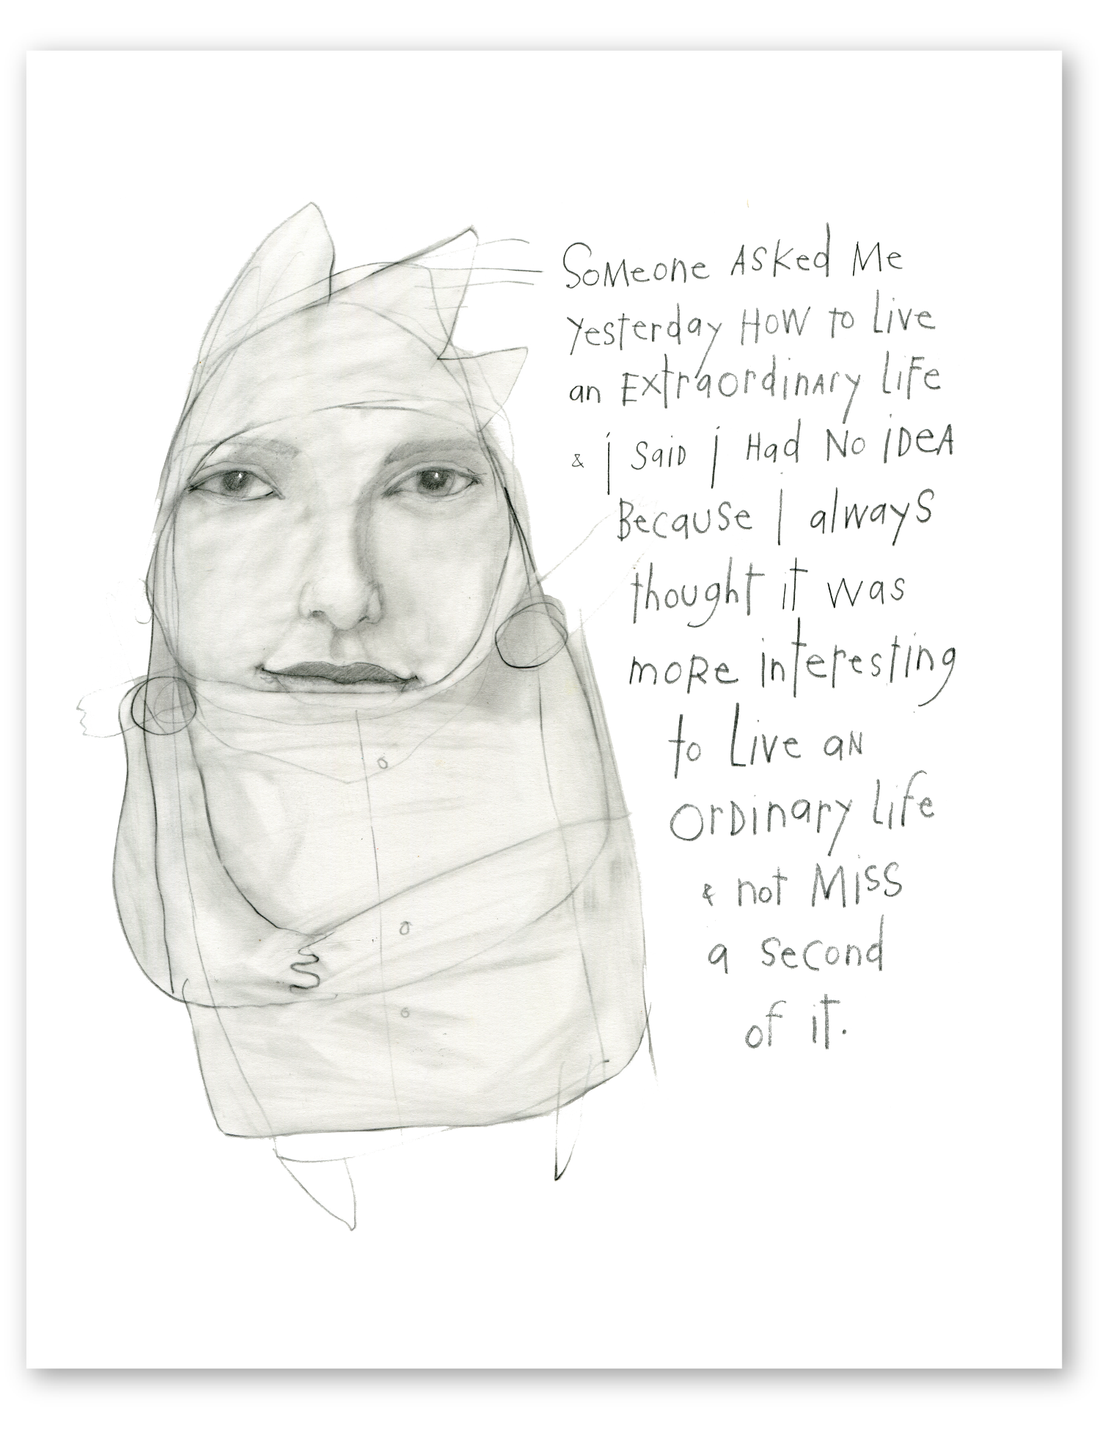 Someone Asked Me
yesterday How to live
an Extraordinary life
& i said i Had No iDeA
Because I always
thought it was
moRe interesting
to Live aN
orDinary life
& not Miss
a second
of it.